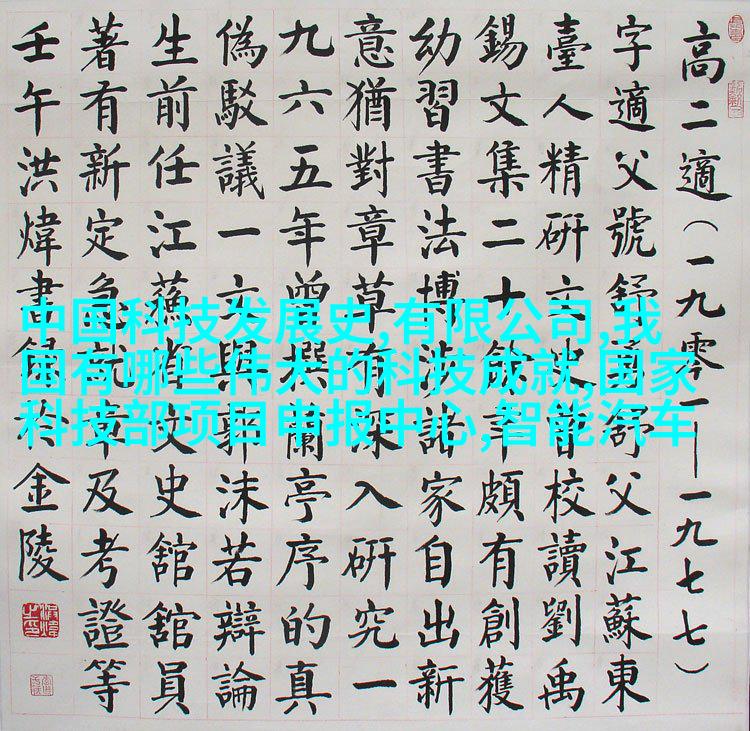 高二適(一九零一—一九七七)
字適父號舒舒父江蘇東
臺人精研文史曾校讀劉禹
錫文集二十餘年頗有創獲
幼習書法博涉諸家自出新
意猶對章草有深入研究一
九六五年曾撰蘭亭序的真
偽駁議一文與郭沫若辯論
生前任江蘇省文史舘舘員
著有新定急就章及考證等
壬午洪煒書錄於金陵
中国科技发展史,有限公司,我
国有哪些伟大的科技成就,国家
科技部项目申报中心,智能汽车